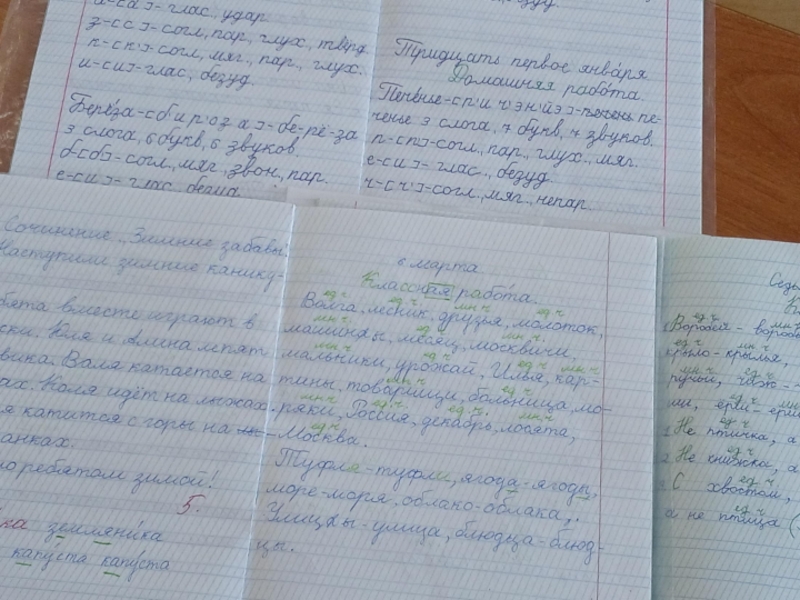 з-[с]-согл., пар., глух., твёрд.
п-[п']-согл., мяг., пар., глух.
и-[и]-глас., безуд.
Берёза-[б'ир'оза]-бе-рё-за
3 слога, 6 букв, 6 звуков.
б-[б']-согл., мяг., звон., пар.
е-[и]-глас., безуд.
Тридцать первое января
Домашняя работа.
Печенье-[п'ич'эн'йэ]-пе-
ченье 3 слога, 7 букв, 7 звуков.
п-[п']-согл., пар., глух., мяг.
е-[и]-глас., безуд.
ч-[ч']-согл., мяг., непар.
Сочинение "Зимние забавы".
Наступили зимние канику-
вместе играют в
Коля и Алина лепят
Валя катается на
Коля идёт на лыжах.
катится с горы на
ребятам зимой!
5.
земляника
капуста капуста
6 марта
Классная работа.
Волга, лесник, друзья, молоток,
машины, месяц, москвичи,
мальчики, урожай, Илья, кар-
тины, товарищи, больница, мо-
ряки, Россия, декабрь, лосята,
Москва.
Туфля-туфли, ягода-ягоды,
море-моря, облако-облака,.
Улицы-улица, блюдца-блюд-
цы.
Воробей-
крыло-крылья,
Не птичка, а
Не книжка, а
С хвостом,
а не птица (